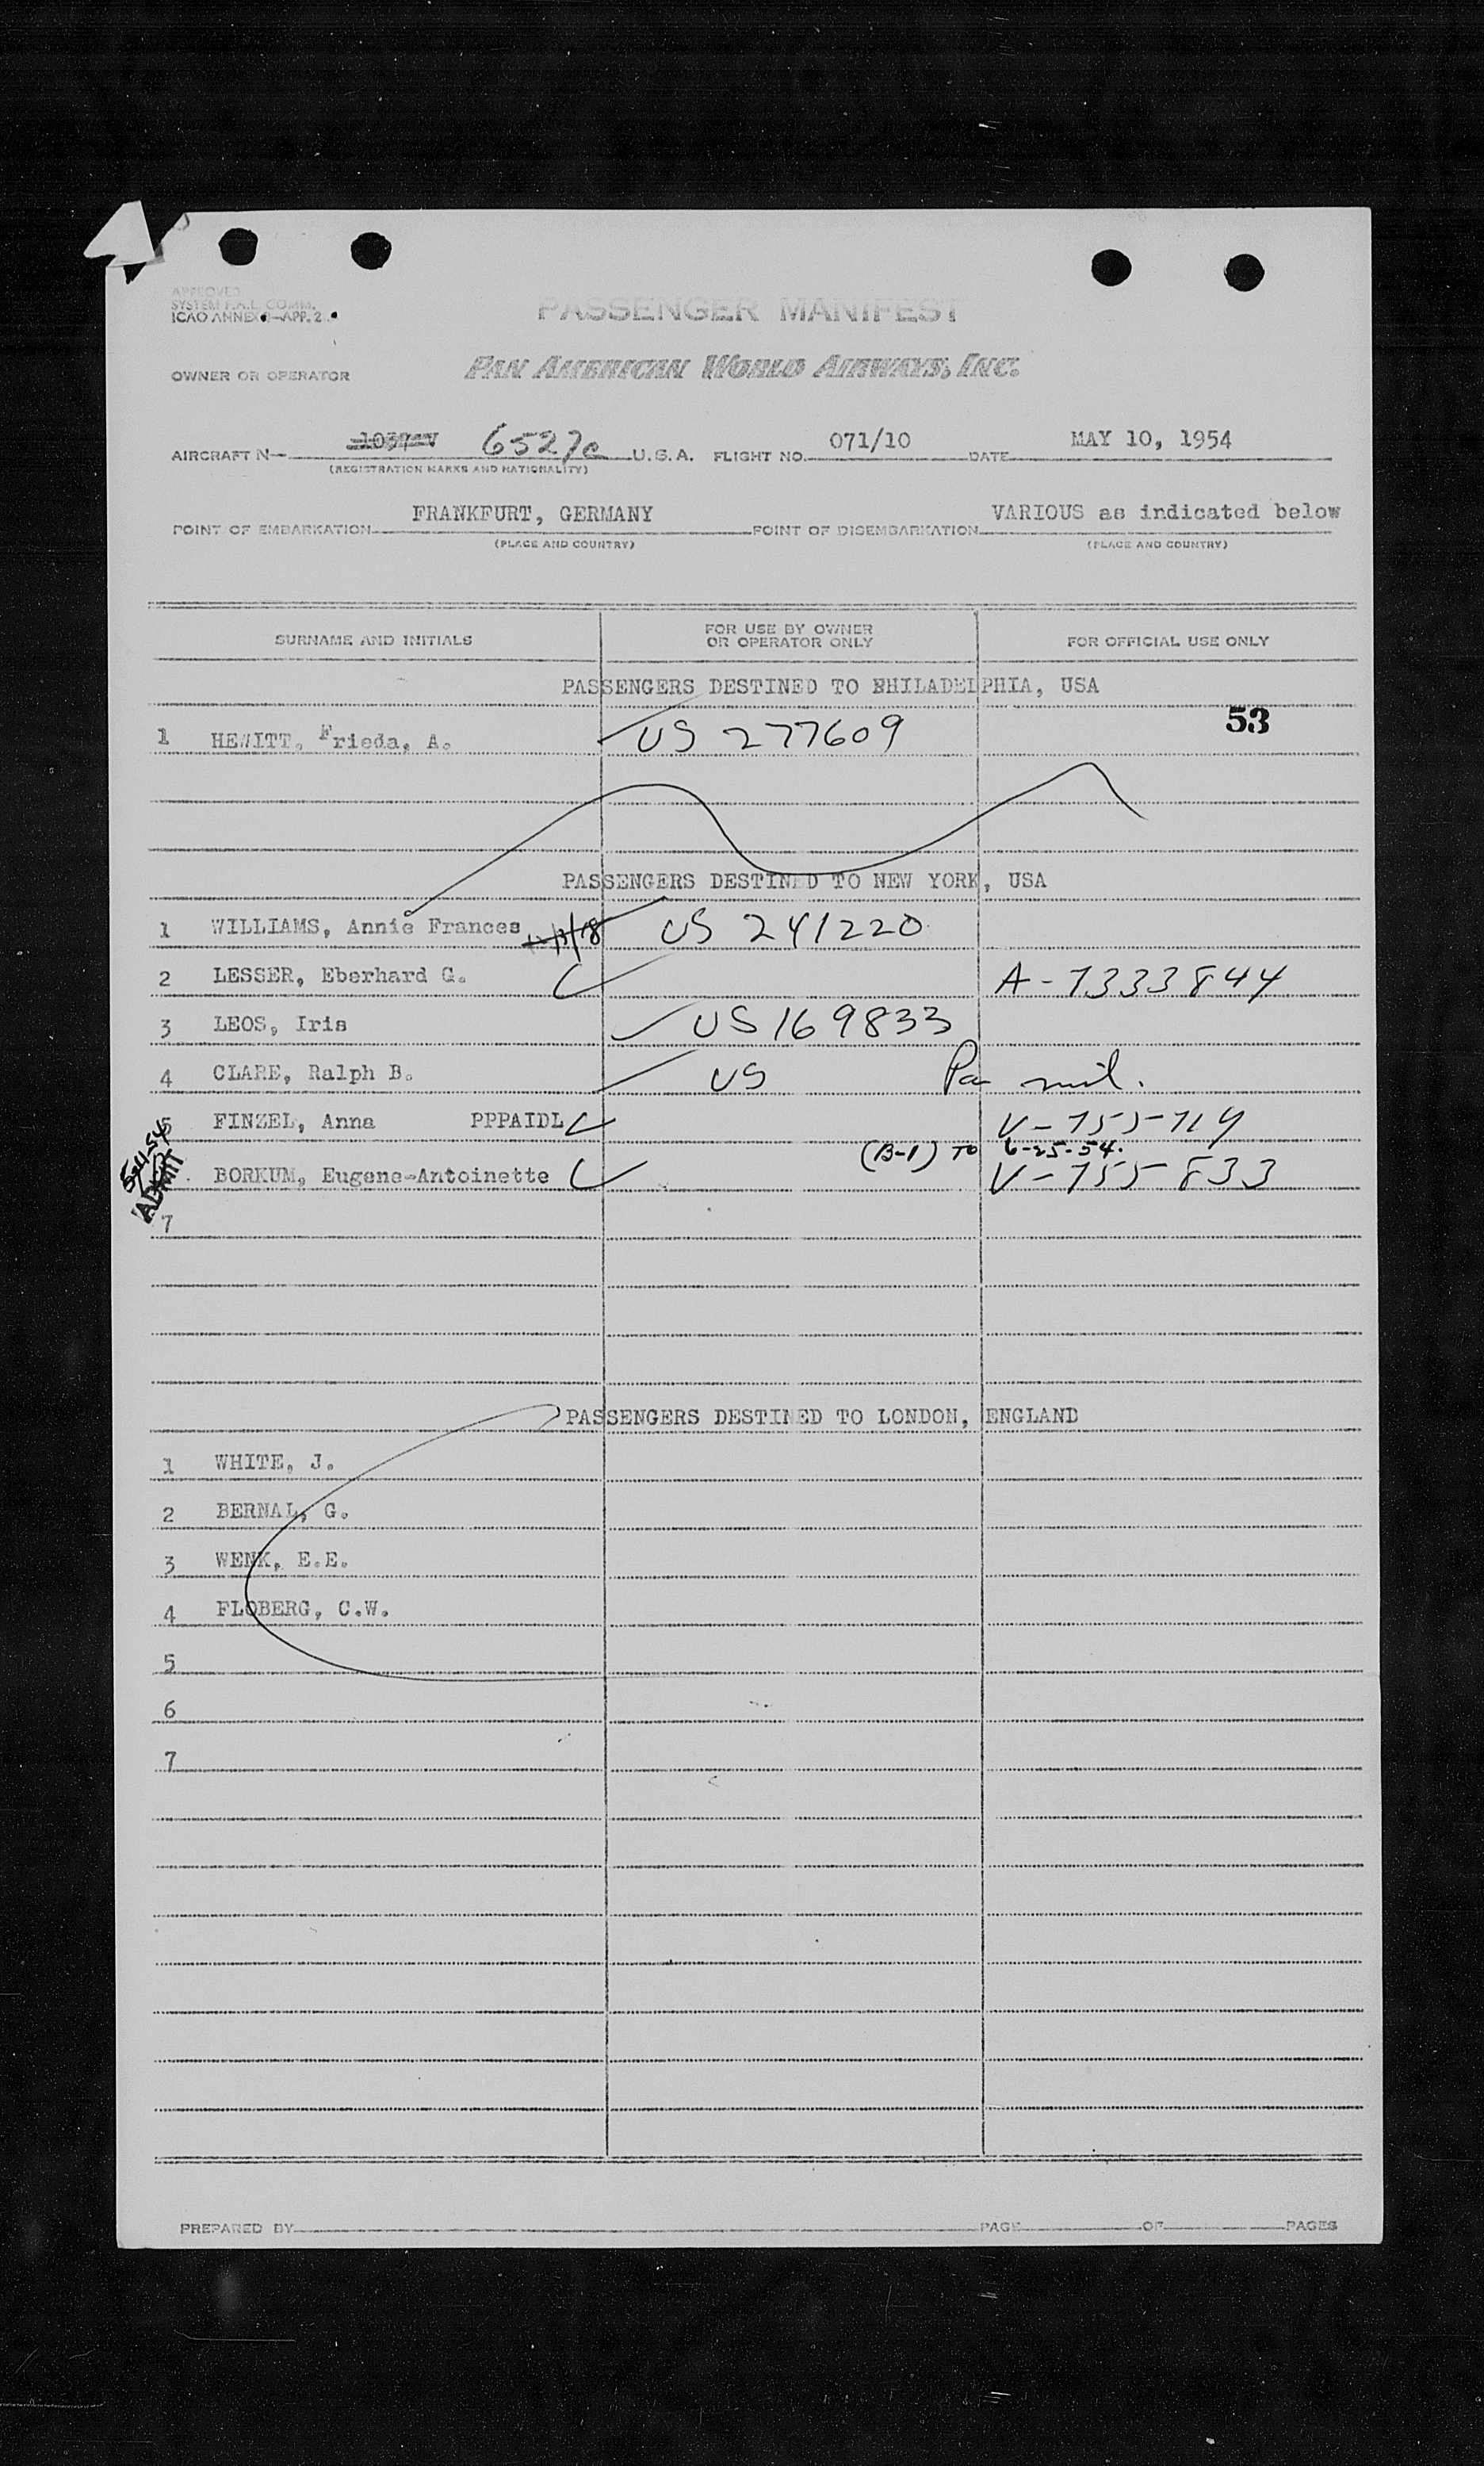 APPROVED
SYSTEM F.A.L. COMM.
ICAO ANNEX 9-APP. 2
PASSENGER MANIFEST
OWNER OR OPERATOR PAN AMERICAN WORLD AIRWAYS, INC.
AIRCRAFT N- 1037-V 6527c U.S.A. FLIGHT NO. 071/10 DATE MAY 10, 1954
(REGISTRATION MARKS AND NATIONALITY)
POINT OF EMBARKATION FRANKFURT, GERMANY POINT OF DISEMBARKATION VARIOUS as indicated below
(PLACE AND COUNTRY) (PLACE AND COUNTRY)
SURNAME AND INITIALS FOR USE BY OWNER OR OPERATOR ONLY FOR OFFICIAL USE ONLY
PASSENGERS DESTINED TO PHILADELPHIA, USA
53
1 HEWITT, Frieda, A. US 277609
PASSENGERS DESTINED TO NEW YORK, USA
1 WILLIAMS, Annie Frances US 241220
2 LESSER, Eberhard G. A-7333844
3 LEOS, Iris US 169833
4 CLARE, Ralph B. US Pa mil.
5 FINZEL, Anna PPPAIDL V-755-714
(B-1) TO 6-25-54.
5-11-54 ADMIT BORKUM, Eugene-Antoinette V-755-833
7
PASSENGERS DESTINED TO LONDON, ENGLAND
1 WHITE, J.
2 BERNAL, G.
3 WENK, E.E.
4 FLOBERG, C.W.
5
6
7
PREPARED BY PAGE OF PAGES